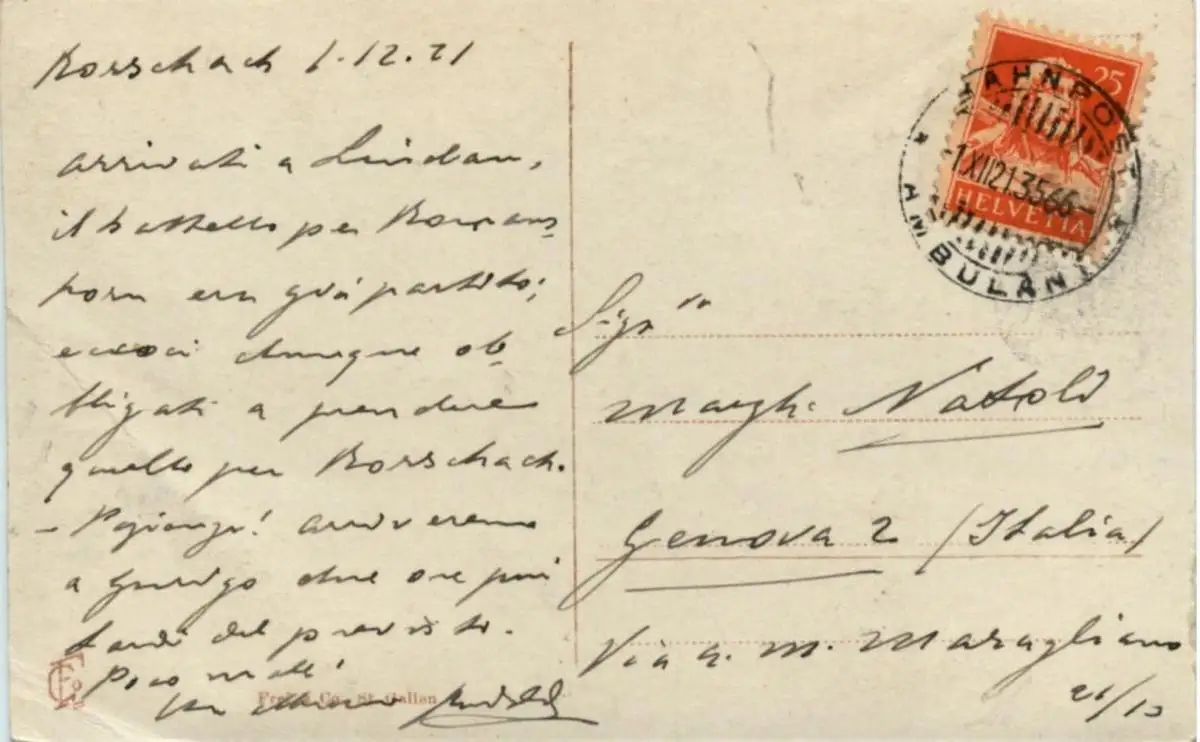 Rorschach 1.12.21
arrivati a Lindau,
il battello per Romans-
horn era già partito;
eccoci dunque ob-
bligati a prendere
quello per Rorschach.
- Pazienza! arriveremo
a Zurigo due ore più
tardi del previsto.
Poco male!
Un
Frei & Co., St. Gallen
25
HELVETIA
BAHNPOST
-1.XII.21.3566-
* AMBULANT *
Sigra
Margh. Natoli
Genova 2 (Italia)
Via A. M. Maragliano
21/13